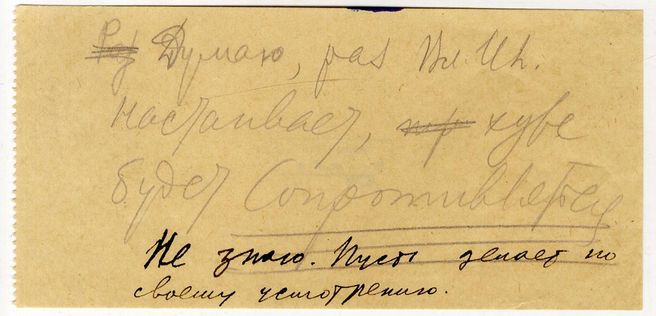 Думаю, раз Вл. Ил.
настаивает, хуже
будет сопротивляться
Не знаю. Пусть делает по
своему усмотрению.